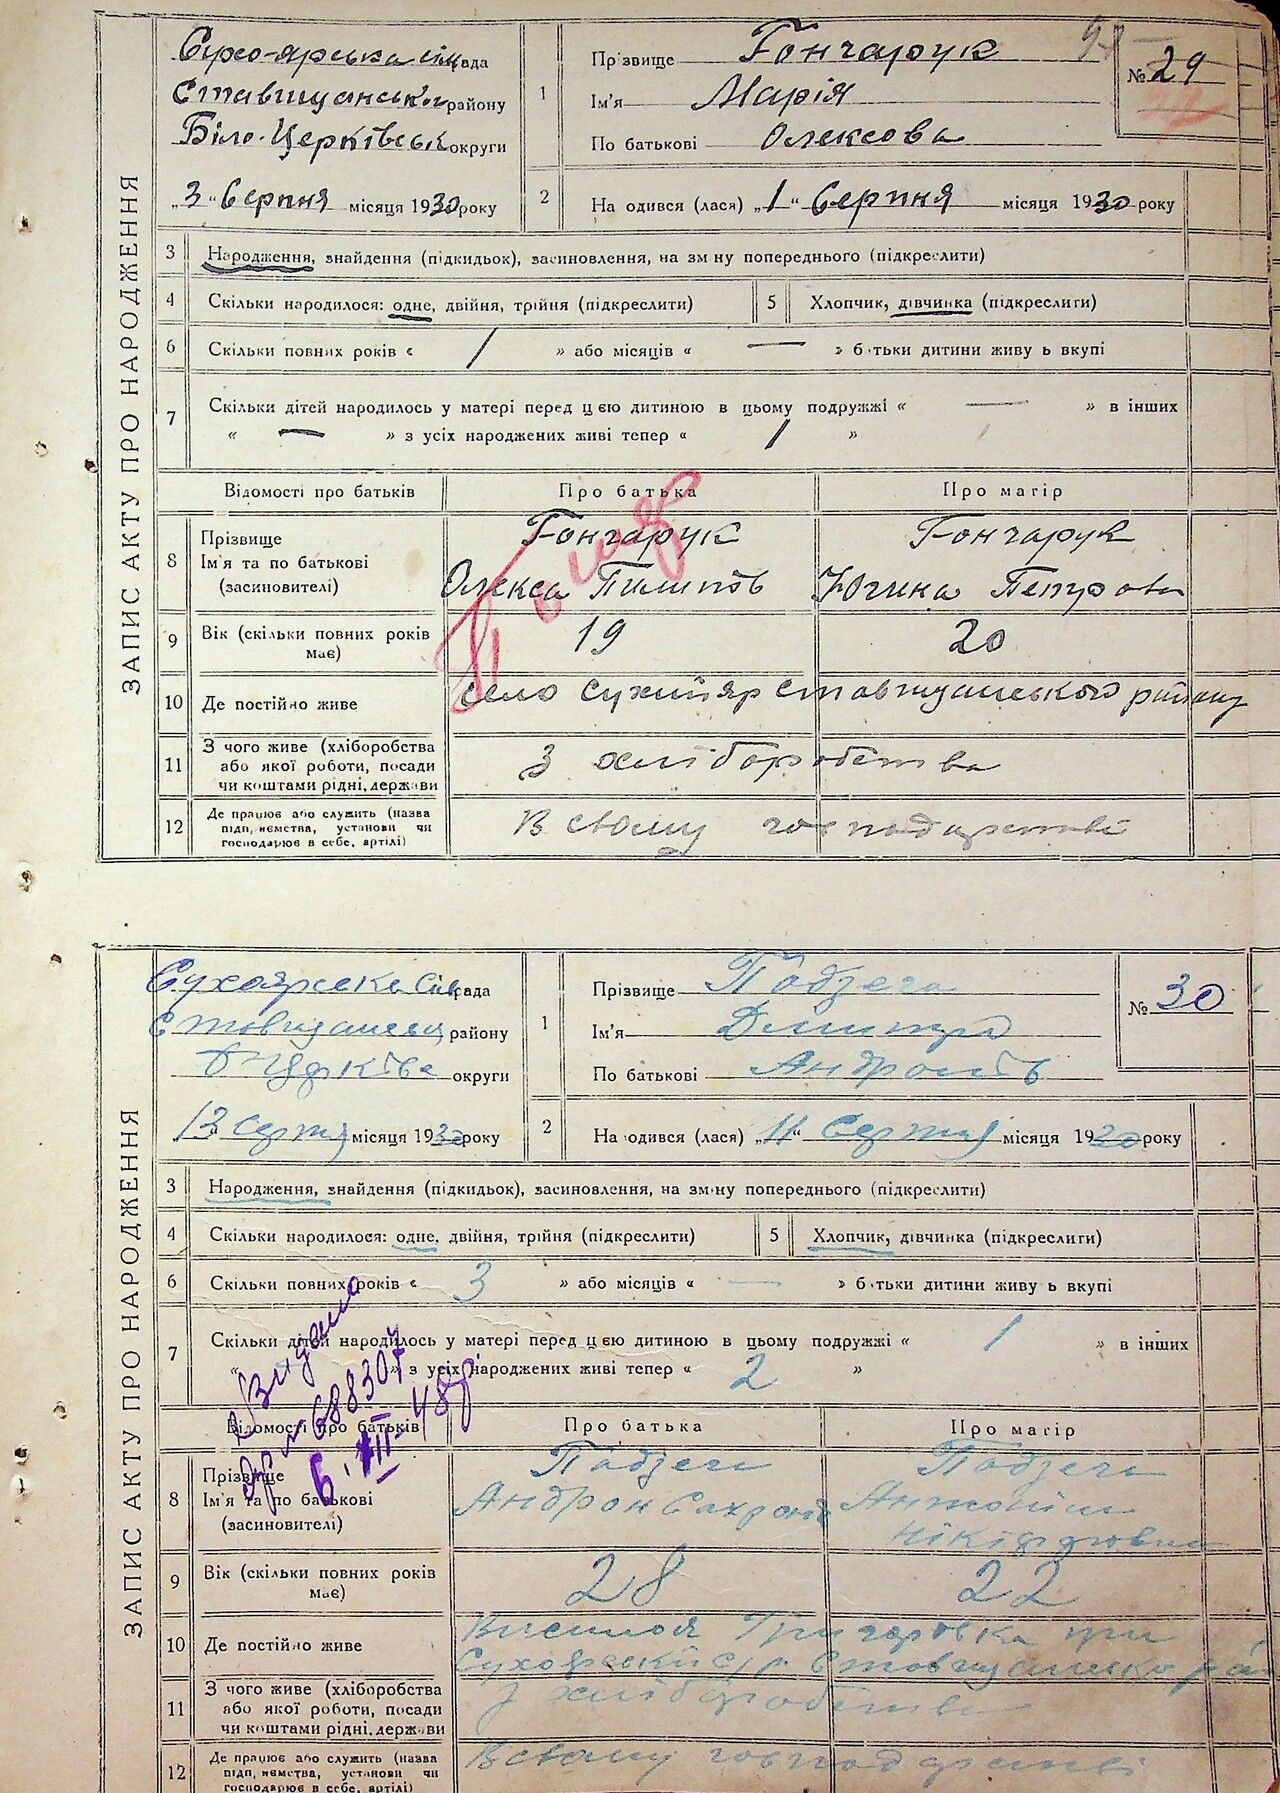 ЗАПИС АКТУ ПРО НАРОДЖЕННЯ
Сухо-ярська сільрада
Ставищанськ району
Біло-Церківськ округи
„3“ Серпня місяця 1930 року
1 Прізвище Гончарук
Ім'я Марія
По батькові Олексова
№ 29
2 На одився (лася) „1“ Серпня місяця 1930 року
3 Народження, знайдення (підкидьок), засиновлення, на зміну попереднього (підкреслити)
4 Скільки народилося: одне, двійня, трійня (підкреслити)
5 Хлопчик, дівчинка (підкреслити)
6 Скільки повних років « 1 » або місяців « — » батьки дитини живуть вкупі
7 Скільки дітей народилось у матері перед цією дитиною в цьому подружжі « — » в інших
« — » з усіх народжених живі тепер « 1 »
Відомості про батьків Про батька Про матір
8 Прізвище Гончарук Гончарук
Ім'я та по батькові Олекса Пилипів Югина Петрова
(засиновителі)
9 Вік (скільки повних років має) 19 20
10 Де постійно живе село Сухий яр Ставищанського району
11 З чого живе (хліборобства
або якої роботи, посади
чи коштами рідні, держави
З хліборобства
12 Де працює або служить (назва
підприємства, установи чи
господарює в себе, артілі)
В свому господарстві
ЗАПИС АКТУ ПРО НАРОДЖЕННЯ
Сухоярська сільрада
Ставищанськ району
округи
13 Серпня місяця 1930 року
1 Прізвище
Ім'я Дмитро
По батькові Андронів
№ 30
2 На одився (лася) „11“ Серпня місяця 1930 року
3 Народження, знайдення (підкидьок), засиновлення, на зміну попереднього (підкреслити)
4 Скільки народилося: одне, двійня, трійня (підкреслити)
5 Хлопчик, дівчинка (підкреслити)
6 Скільки повних років « 3 » або місяців « — » батьки дитини живуть вкупі
7 Скільки дітей народилось у матері перед цією дитиною в цьому подружжі « 1 » в інших
« » з усіх народжених живі тепер « 2 »
Видано
688307
Відомості про батьків Про батька Про матір
8 Прізвище
Ім'я та по батькові Андрон
(засиновителі)
9 Вік (скільки повних років має) 28 22
10 Де постійно живе Григорівка при
Сухоярській с/р. Ставищанськ
11 З чого живе (хліборобства
або якої роботи, посади
чи коштами рідні, держави
З хліборобства
12 Де працює або служить (назва
підприємства, установи чи
господарює в себе, артілі)
В свому господарстві